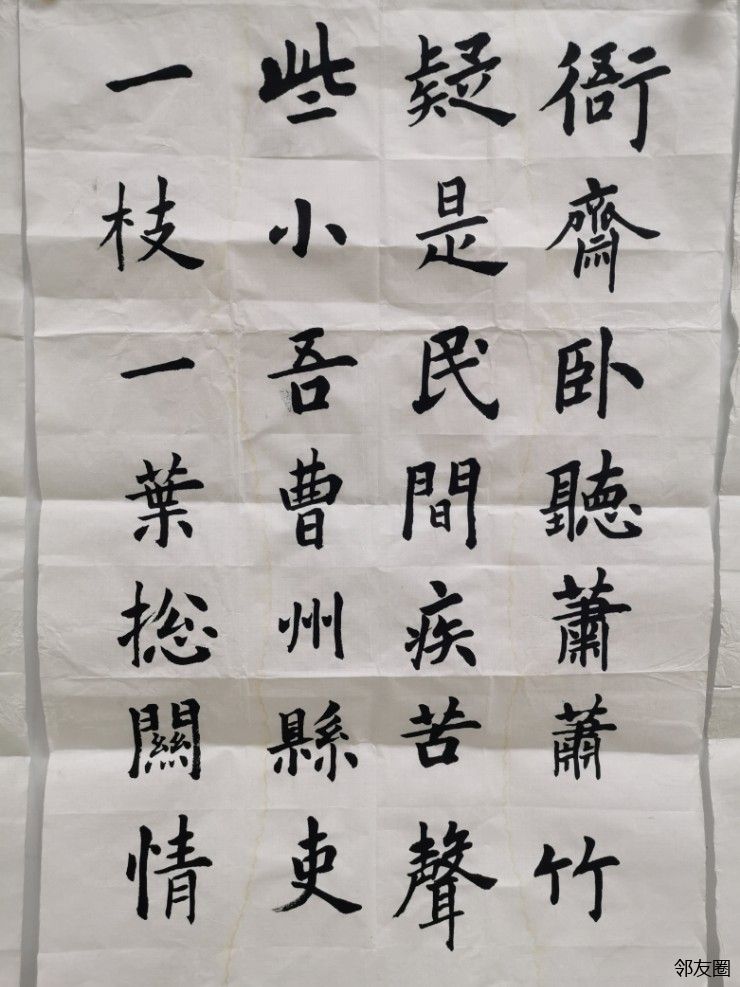 衙齋卧聽蕭蕭竹
疑是民間疾苦聲
些小吾曹州縣吏
一枝一葉揔關情
邻友圈